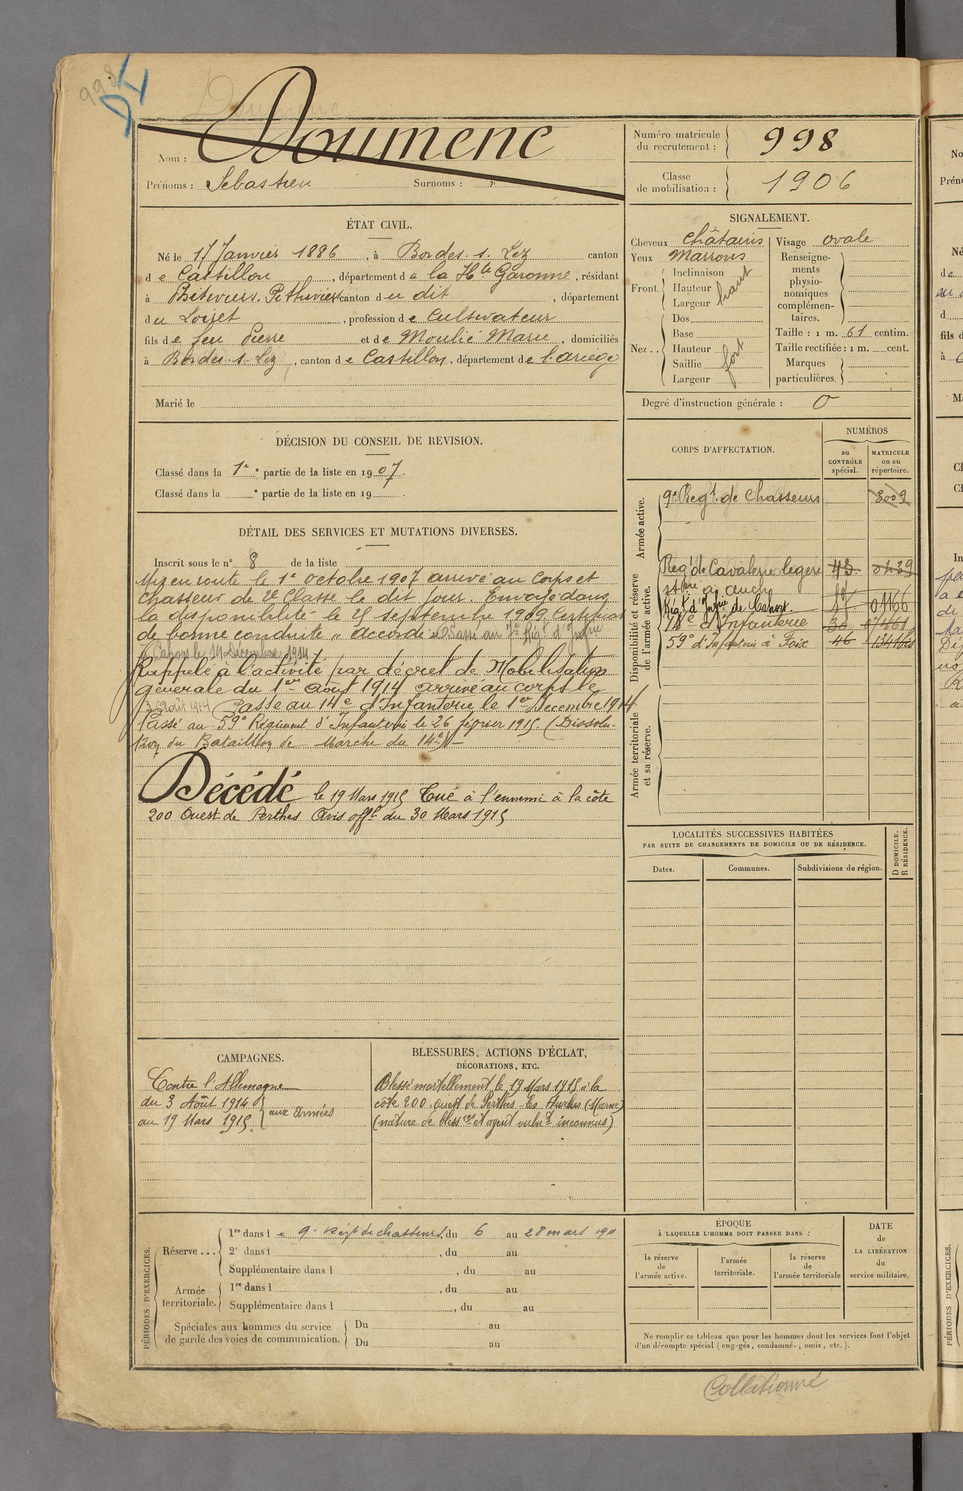 998
Doumenc
Nom : Doumenc
Prénoms : Sébastien Surnoms : "
Numéro matricule du recrutement : 998
Classe de mobilisation : 1906
ÉTAT CIVIL.
Né le 17 Janvier 1886, à Bordes. s. Lez canton
de Castillon, département de la Hte Garonne, résidant
à Pithiviers canton du dit, département
du Loiret, profession de Cultivateur
fils de feu Pierre et de Moulié Marie, domiciliés
à Bordes. s. Lez, canton de Castillon, département de l'ariège
Marié le
SIGNALEMENT.
Cheveux châtains
Yeux Marrons
Front. Inclinaison
Hauteur haut
Largeur
Nez.. Dos
Base
Hauteur fort
Saillie
Largeur
Visage ovale
Renseigne-
ments
physio-
nomiques
complémen-
taires.
Taille : 1 m. 61 centim.
Taille rectifiée : 1 m. cent.
Marques
particulières.
Degré d'instruction générale : 0
DÉCISION DU CONSEIL DE REVISION.
Classé dans la 1e partie de la liste en 1907.
Classé dans la e partie de la liste en 19 .
CORPS D'AFFECTATION.
NUMÉROS
au CONTRÔLE spécial.
MATRICULE ou au répertoire.
Armée active.
9e Regt. de Chasseurs 3009
Disponibilité et réserve de l'armée active.
Regt de Cavalerie légère 43 0439
à auch
Regt d'Infie de Cahors 01166
14e d'Infanterie 30 17461
59e d'Infanterie à Foix 46
Armée territoriale et sa réserve.
DÉTAIL DES SERVICES ET MUTATIONS DIVERSES.
Inscrit sous le n° 8 de la liste
Mis en route le 1er octobre 1907 arrivé au Corps et
chasseur de 2e Classe le dit jour. Envoyé dans
la disponibilité le 25 septembre 1909. Certificat
de bonne conduite " accordé " Passé au 7e Régt d'Infie
à Cahors le 14 Décembre 1911
Rappelé à l'activité par décret de Mobilisation
générale du 1er Août 1914 arrivé au corps le
3 Août 1914 Passé au 14e d'Infanterie le 1er Décembre 1914
Passé au 59e Régiment d'Infanterie le 26 février 1915 (Dissolu-
tion du Bataillon de Marche du 14e)
Décédé le 19 Mars 1915 Tué à l'ennemi à la côte
200 Ouest de Perthes Avis offel du 30 Mars 1915
LOCALITÉS SUCCESSIVES HABITÉES
PAR SUITE DE CHANGEMENTS DE DOMICILE OU DE RÉSIDENCE.
Dates. Communes. Subdivisions de région. D DOMICILE. R RÉSIDENCE.
CAMPAGNES.
Contre l'Allemagne
du 3 Août 1914
au 19 Mars 1915. aux Armées
BLESSURES, ACTIONS D'ÉCLAT,
DÉCORATIONS, ETC.
Blessé mortellement le 19 Mars 1915 à la
côte 200, ouest de Perthes-les-Hurlus (Marne)
(nature de blessres et agent vulnt inconnus)
PÉRIODES D'EXERCICES.
Réserve ... 1re dans le 9e Régt de chasseurs, du 6 au 28 mars 1911
2e dans l , du au
Supplémentaire dans l , du au
Armée territoriale. 1re dans l , du au
Supplémentaire dans l , du au
Spéciales aux hommes du service
de garde des voies de communication.
Du au
Du au
ÉPOQUE
À LAQUELLE L'HOMME DOIT PASSER DANS :
la réserve de l'armée active.
l'armée territoriale.
la réserve de l'armée territoriale
DATE
de
LA LIBÉRATION
du
service militaire.
Ne remplir ce tableau que pour les hommes dont les services font l'objet
d'un décompte spécial (engagés, condamnés, omis, etc.).
Collationné